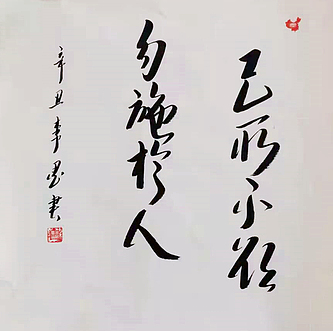 己所不欲
勿施於人
辛丑年墨书